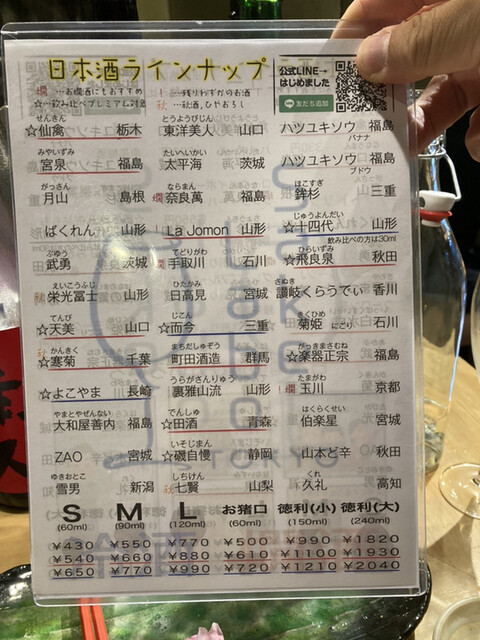 日本酒ラインナップ
燗…お燗酒にもおすすめ
！…残りわずかのお酒
☆…飲み比べプレミアム対象
秋…秋酒、ひやおろし
公式LINE→
はじめました
友だち追加
せんきん
☆仙禽 栃木
とうようびじん
東洋美人 山口
ハツユキソウ 福島
バナナ
みやいずみ
宮泉 福島
たいへいかい
太平海 茨城
ハツユキソウ 福島
ブドウ
がっさん
月山 島根
ならまん
燗 奈良萬 福島
ほこすぎ
鉾杉 三重
ばくれん 山形
La Jomon 山形
じゅうよんだい
☆十四代 山形
飲み比べの方は30ml
ぶゆう
武勇 茨城
てどりがわ
燗 手取川 石川
ひらいずみ
☆飛良泉 秋田
えいこうふじ
秋 栄光冨士 山形
ひたかみ
日高見 宮城
さぬき
讃岐くらうでぃ 香川
てんび
☆天美 山口
じこん
☆而今 三重
きくひめ
菊姫 にごり 石川
かんきく
秋 ☆寒菊 千葉
まちだしゅぞう
町田酒造 群馬
がっきまさむね
☆楽器正宗 福島
☆よこやま 長崎
うらがさんりゅう
裏雅山流 山形
たまがわ
！燗 玉川 京都
やまとやぜんない
大和屋善内 福島
でんしゅ
☆田酒 青森
はくらくせい
伯楽星 宮城
ZAO 宮城
いそじまん
☆磯自慢 静岡
山本ど辛 秋田
ゆきおとこ
雪男 新潟
しちけん
秋 七賢 山梨
くれ
久礼 高知
S M L お猪口 徳利(小) 徳利(大)
(60ml) (90ml) (120ml) (60ml) (150ml) (240ml)
¥430 ¥550 ¥770 ¥500 ¥990 ¥1820
¥540 ¥660 ¥880 ¥610 ¥1100 ¥1930
¥650 ¥770 ¥990 ¥720 ¥1210 ¥2040